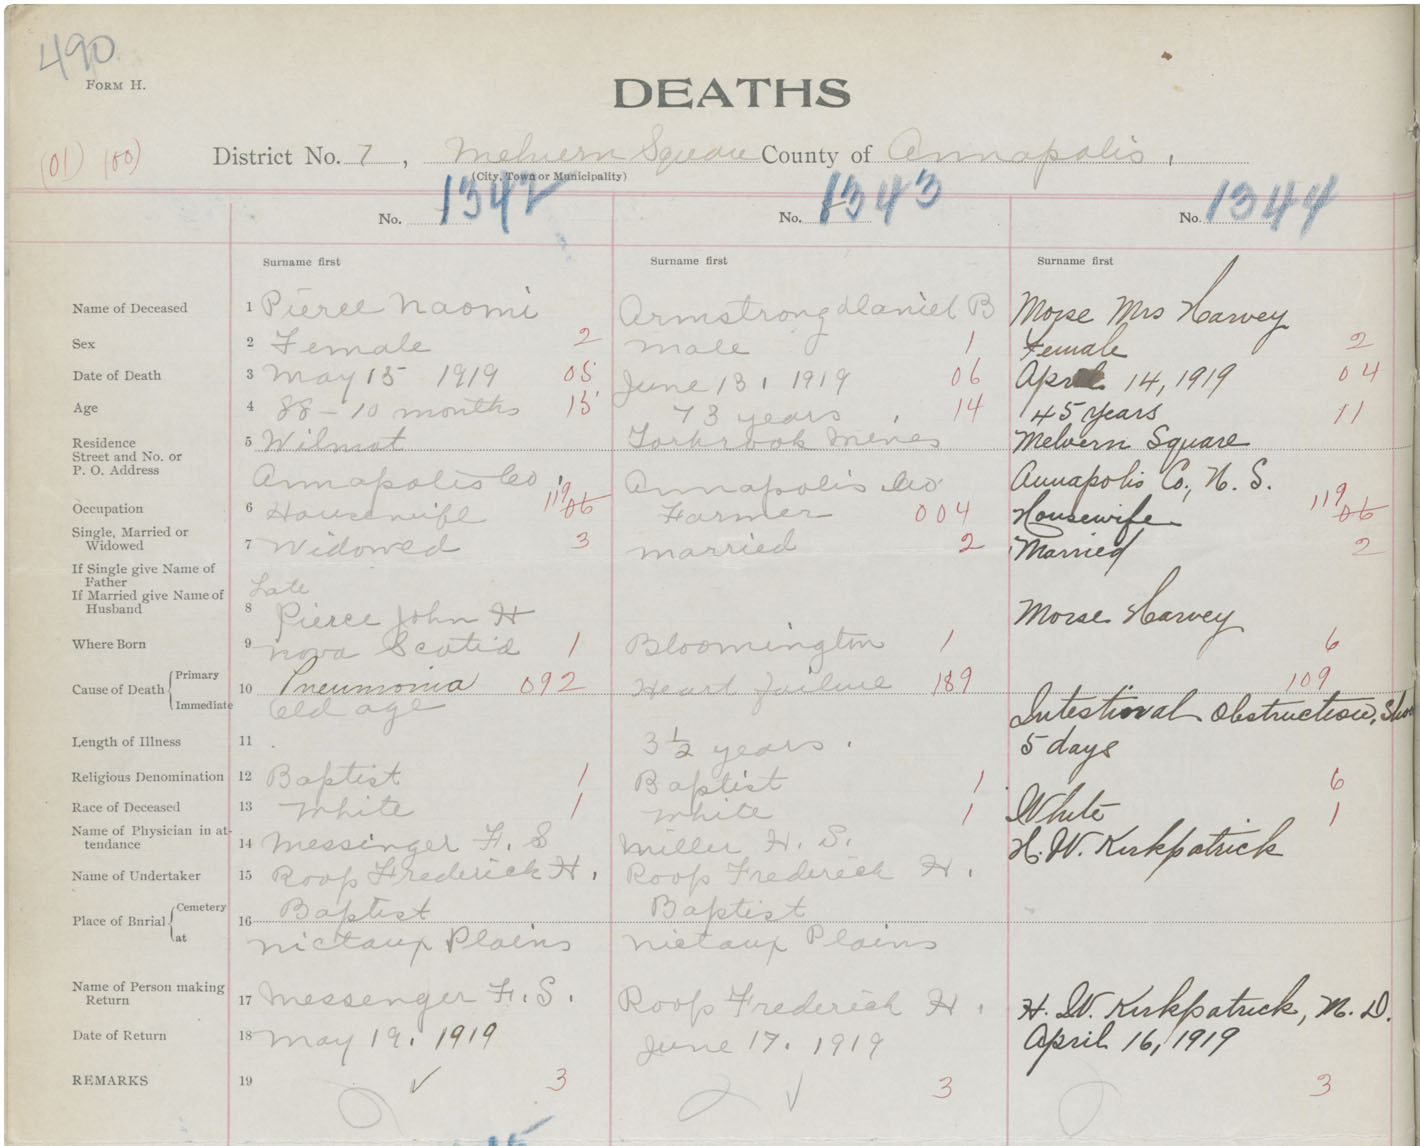 490.
FORM H.
DEATHS
(01) (00)
District No. 7, Melvern Square County of Annapolis,
(City, Town or Municipality)
No. 1342 No. 1343 No. 1344
Surname first Surname first Surname first
Name of Deceased 1 Pierce Naomi Armstrong Daniel B Morse Mrs Harvey
Sex 2 Female 2 Male 1 Female 2
Date of Death 3 May 15 1919 05 June 13, 1919 06 April 14, 1919 04
Age 4 88 - 10 months 15 73 years 14 45 years 11
Residence Street and No. or P. O. Address 5 Wilmot Torbrook Mines Melvern Square
Annapolis Co, Annapolis Co. Annapolis Co., N. S.
Occupation 6 Housewife 119 06 Farmer 004 Housewife 119 06
Single, Married or Widowed 7 Widowed 3 married 2 Married 2
If Single give Name of Father
If Married give Name of Husband 8 Late
Pierce John H Morse Harvey
Where Born 9 Nova Scotia 1 Bloomington 1 6
Cause of Death { Primary 10 Pneumonia 092 Heart failure 189 109
Immediate Old age Intestinal obstruction,
Length of Illness 11 3 1/2 years. 5 days
Religious Denomination 12 Baptist 1 Baptist 1 6
Race of Deceased 13 White 1 White 1 White 1
Name of Physician in attendance 14 Messinger F. S Miller H. S. H. W. Kirkpatrick
Name of Undertaker 15 Roop Frederick H. Roop Frederick H.
Place of Bnrial { Cemetery 16 Baptist Baptist
at Nictaux Plains Nictaux Plains
Name of Person making Return 17 Messenger F. S. Roop Frederick H. H. W. Kirkpatrick, M. D.
Date of Return 18 May 19. 1919 June 17. 1919 April 16, 1919
REMARKS 19 3 3 3